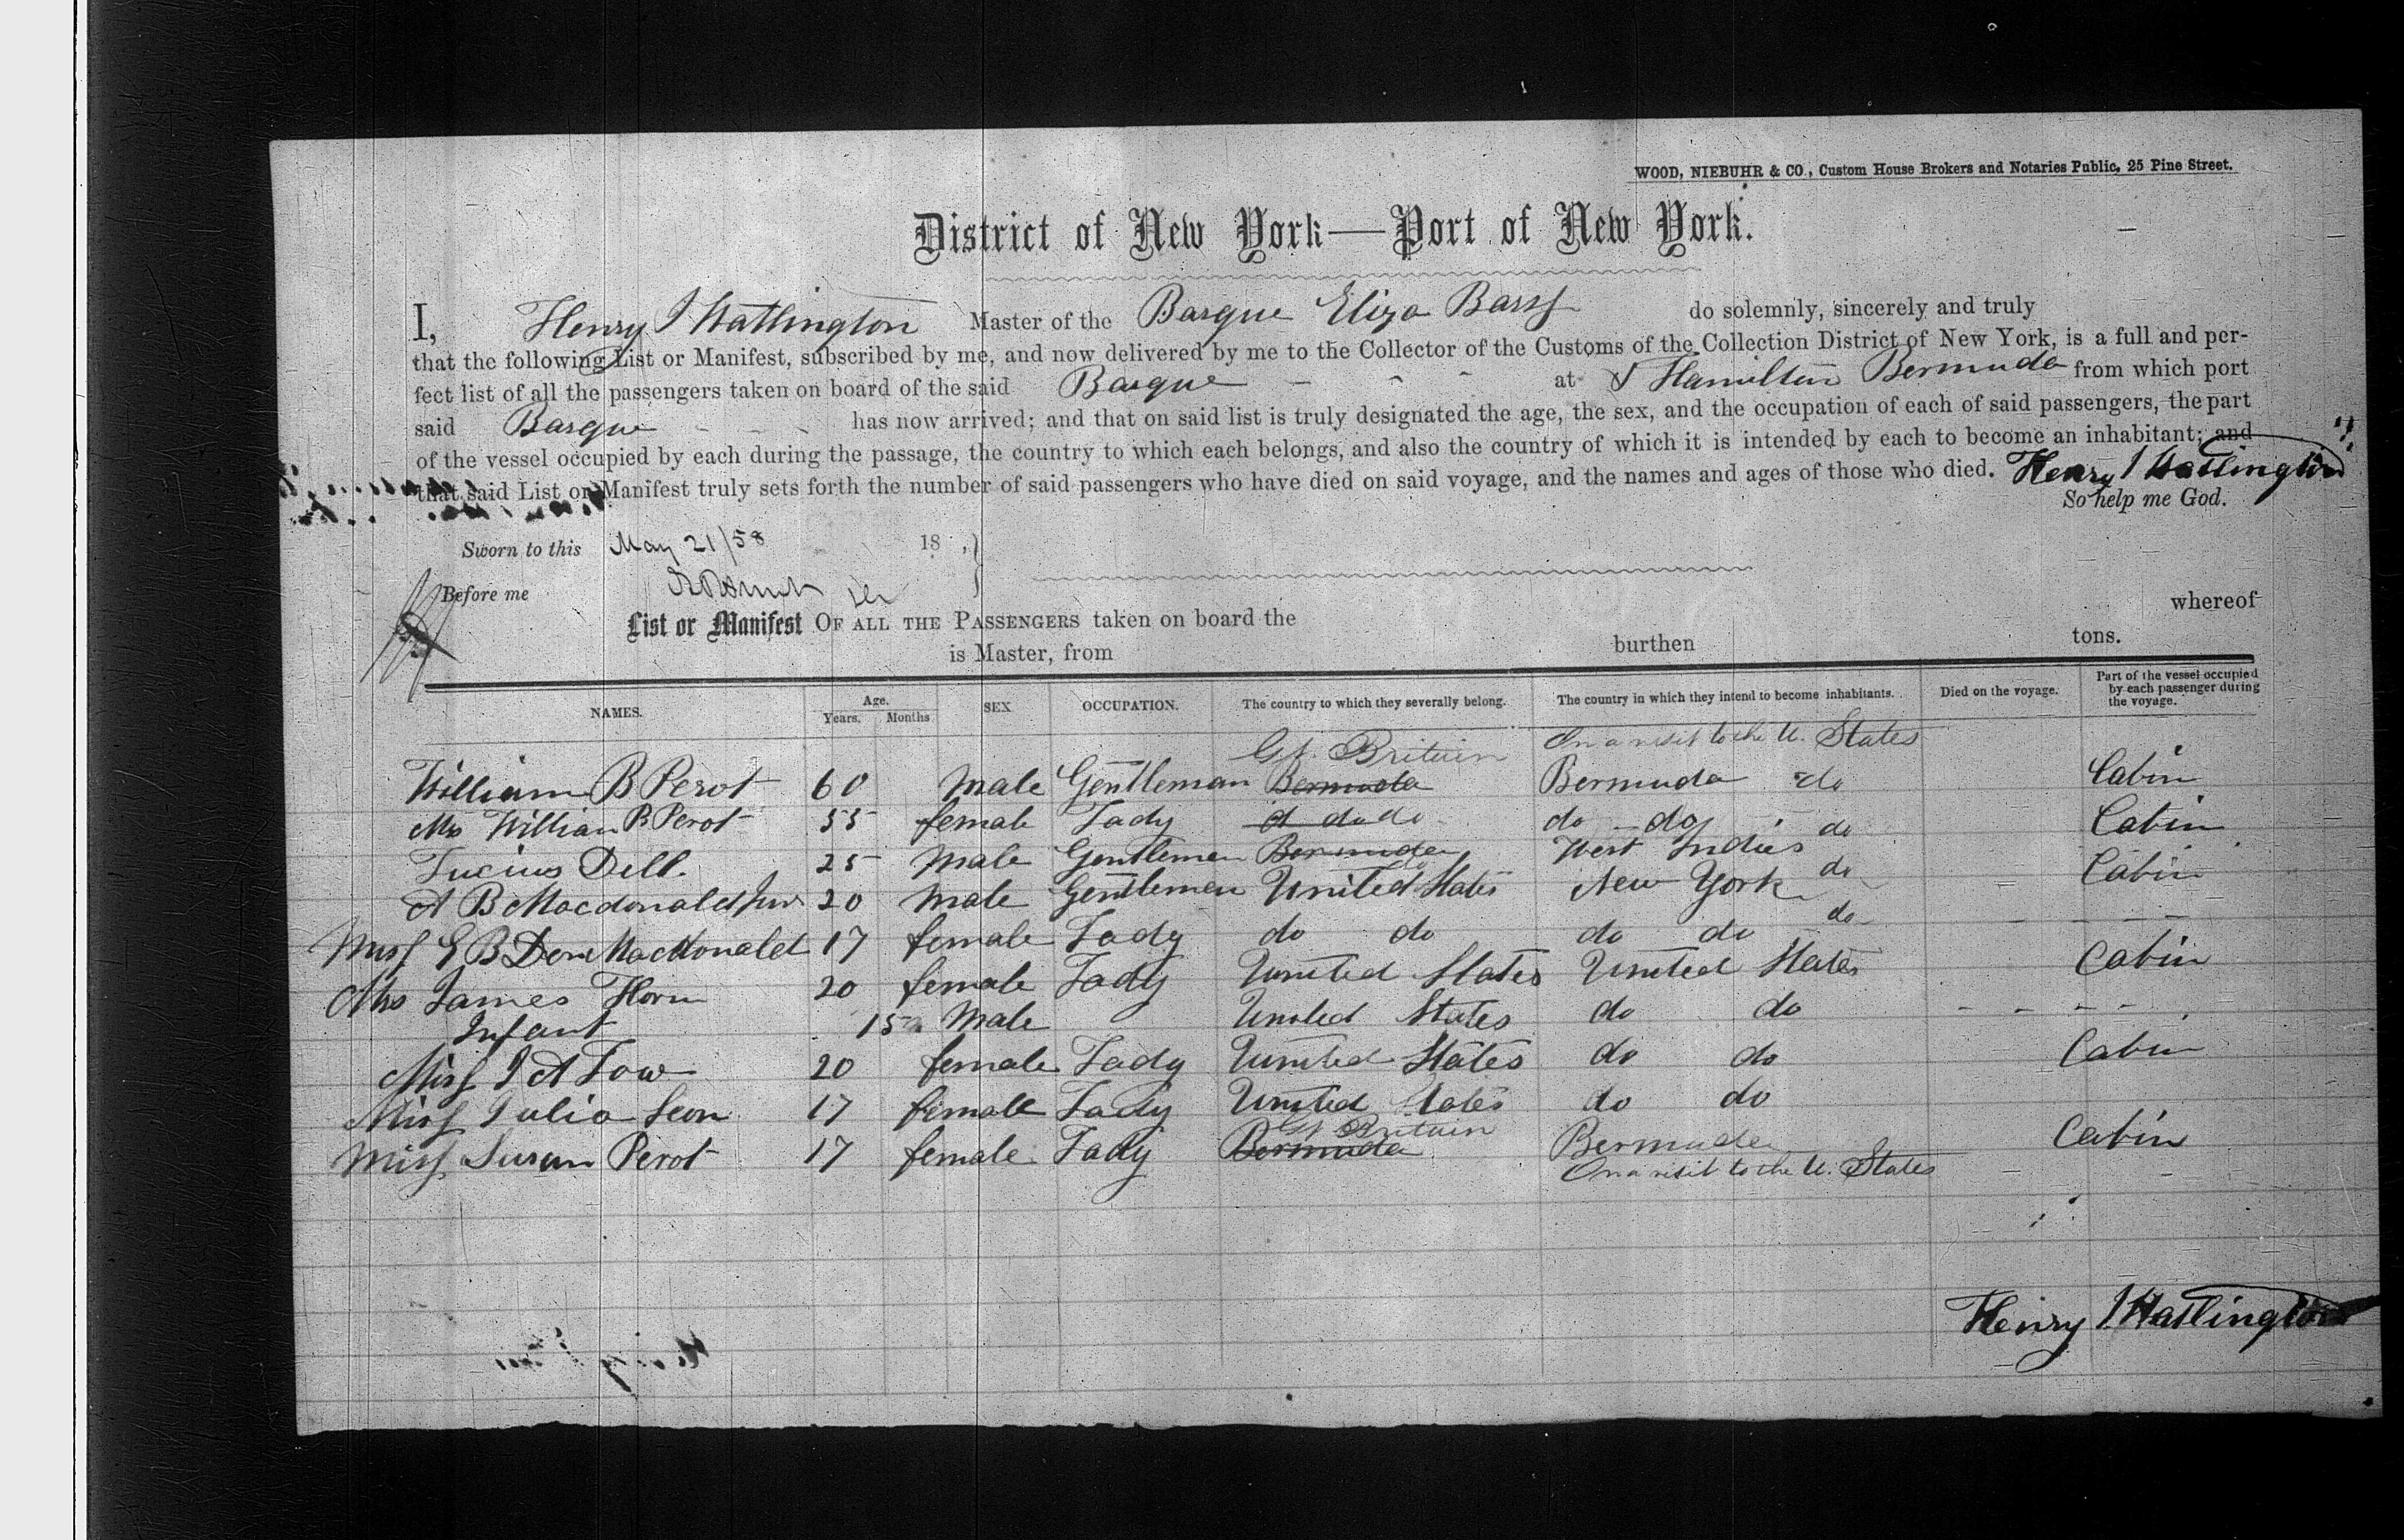 WOOD, NIEBUHR & CO., Custom House Brokers and Notaries Public, 25 Pine Street.
District of New York—Port of New York.
I, Henry J Watlington Master of the Barque Eliza Barss do solemnly, sincerely and truly
that the following List or Manifest, subscribed by me, and now delivered by me to the Collector of the Customs of the Collection District of New York, is a full and per-
fect list of all the passengers taken on board of the said Barque at Hamilton Bermuda from which port
said Barque has now arrived; and that on said list is truly designated the age, the sex, and the occupation of each of said passengers, the part
of the vessel occupied by each during the passage, the country to which each belongs, and also the country of which it is intended by each to become an inhabitant; and
that said List or Manifest truly sets forth the number of said passengers who have died on said voyage, and the names and ages of those who died. Henry J Watlington
So help me God.
Sworn to this May 21/58 18 ,
Before me
List or Manifest OF ALL THE PASSENGERS taken on board the whereof
is Master, from burthen tons.
NAMES. Age. Years. Months SEX OCCUPATION. The country to which they severally belong. The country in which they intend to become inhabitants. Died on the voyage. Part of the vessel occupied by each passenger during the voyage.
Gt. Britain On a visit to the U. States
William B Perot 60 Male Gentleman Bermuda Bermuda do Cabin
Mrs William B Perot 55 female Lady do do do do do Cabin
Lucius Dell. 25 Male Gentleman Bermuda West Indies do Cabin
A B Macdonald Jun 20 Male Gentleman United States New York do
Miss E B MacDonald 17 female Lady do do do do do
Mrs James Horn 20 female Lady United States United States Cabin
Infant 15 Male United States do do
Miss J A Low 20 female Lady United States do do Cabin
Miss Julia 17 female Lady United States do do
Gt. Britain
Miss Susan Perot 17 female Lady Bermuda Bermuda Cabin
On a visit to the U. States
Henry J Watlington